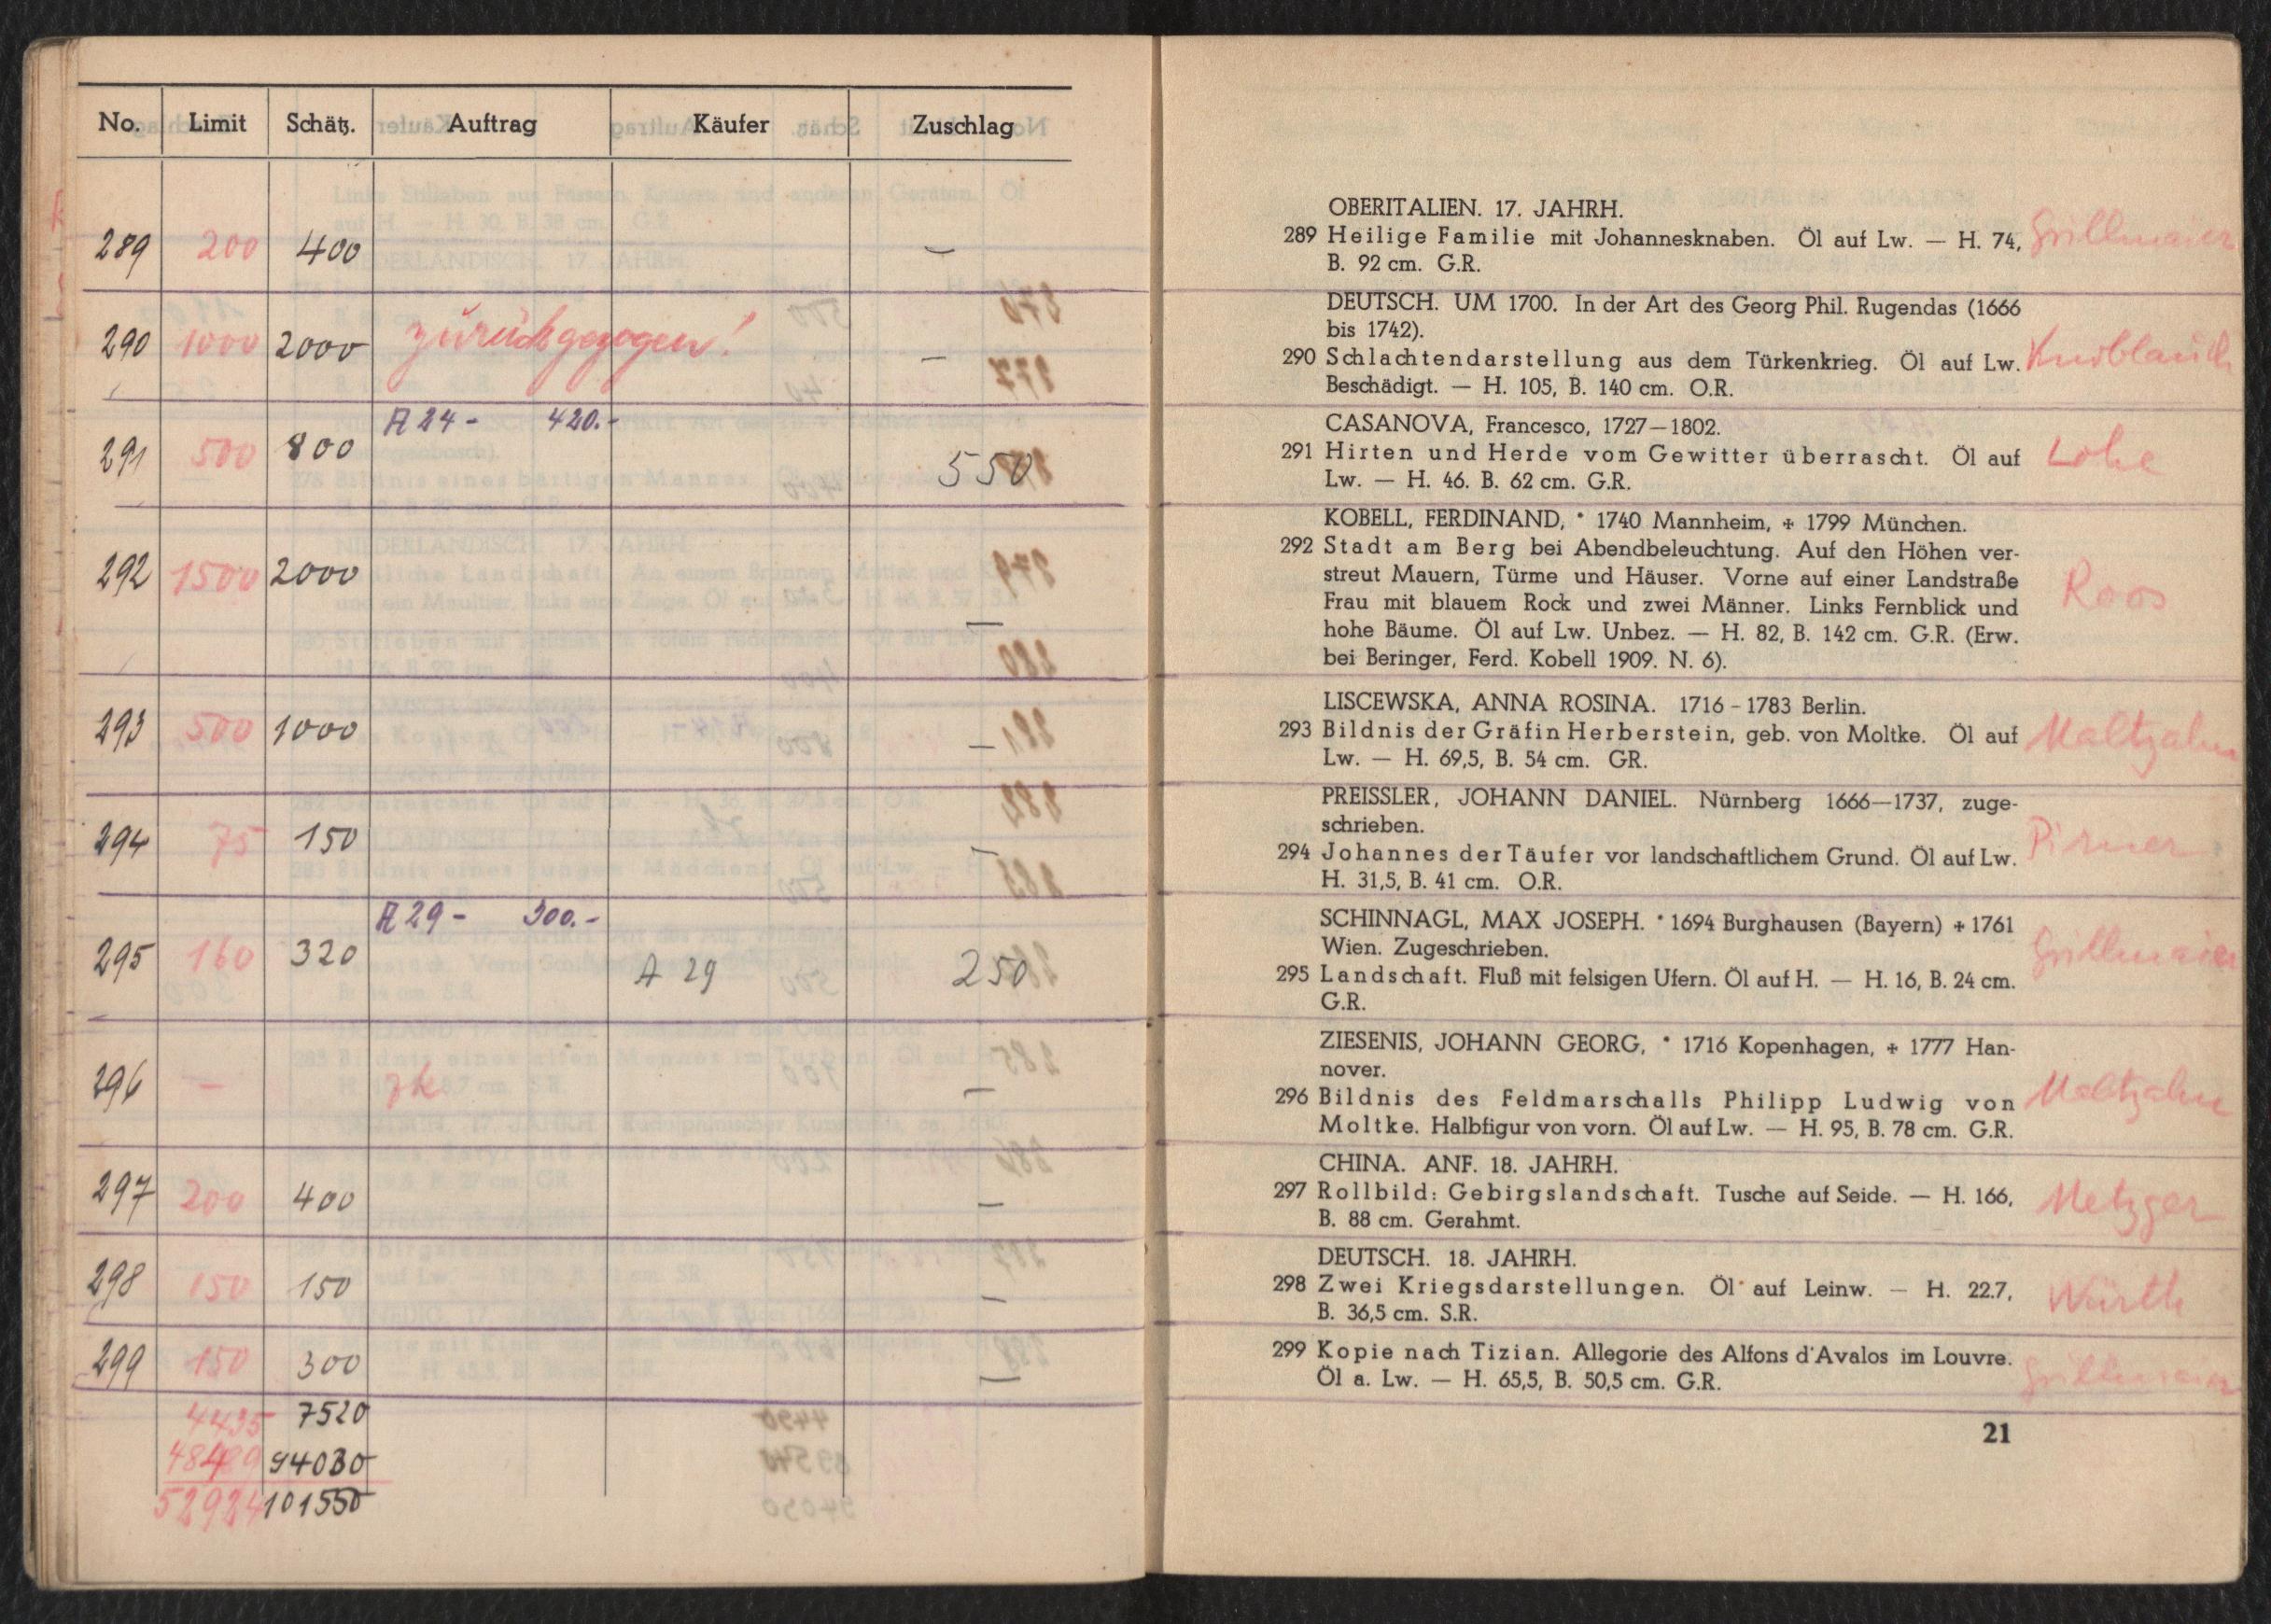 No. Limit Schätz. Auftrag Käufer Zuschlag
289 200 400 —
290 1000 2000 zurückgezogen! —
A 24 - 420.-
291 500 800 550
292 1500 2000 —
293 500 1000 —
294 75 150 —
A 29 - 300.-
295 160 320 A 29 250
296 — zk —
297 200 400 —
298 150 150 —
299 150 300 —
4435 7520
48489 94030
52924 101550
OBERITALIEN. 17. JAHRH.
289 Heilige Familie mit Johannesknaben. Öl auf Lw. — H. 74, Grillmaier
B. 92 cm. G.R.
DEUTSCH. UM 1700. In der Art des Georg Phil. Rugendas (1666
bis 1742).
290 Schlachtendarstellung aus dem Türkenkrieg. Öl auf Lw. Knoblauch
Beschädigt. — H. 105, B. 140 cm. O.R.
CASANOVA, Francesco, 1727—1802.
291 Hirten und Herde vom Gewitter überrascht. Öl auf Lohe
Lw. — H. 46. B. 62 cm. G.R.
KOBELL, FERDINAND, * 1740 Mannheim, + 1799 München.
292 Stadt am Berg bei Abendbeleuchtung. Auf den Höhen ver-
streut Mauern, Türme und Häuser. Vorne auf einer Landstraße
Frau mit blauem Rock und zwei Männer. Links Fernblick und Roos
hohe Bäume. Öl auf Lw. Unbez. — H. 82, B. 142 cm. G.R. (Erw.
bei Beringer, Ferd. Kobell 1909. N. 6).
LISCEWSKA, ANNA ROSINA. 1716 - 1783 Berlin.
293 Bildnis der Gräfin Herberstein, geb. von Moltke. Öl auf Maltzahn
Lw. — H. 69,5, B. 54 cm. GR.
PREISSLER, JOHANN DANIEL. Nürnberg 1666—1737, zuge-
schrieben.
294 Johannes der Täufer vor landschaftlichem Grund. Öl auf Lw. Pirner
H. 31,5, B. 41 cm. O.R.
SCHINNAGL, MAX JOSEPH. * 1694 Burghausen (Bayern) + 1761
Wien. Zugeschrieben. Grillmaier
295 Landschaft. Fluß mit felsigen Ufern. Öl auf H. — H. 16, B. 24 cm.
G.R.
ZIESENIS, JOHANN GEORG, * 1716 Kopenhagen, + 1777 Han-
nover.
296 Bildnis des Feldmarschalls Philipp Ludwig von Maltzahn
Moltke. Halbfigur von vorn. Öl auf Lw. — H. 95, B. 78 cm. G.R.
CHINA. ANF. 18. JAHRH.
297 Rollbild: Gebirgslandschaft. Tusche auf Seide. — H. 166, Metzger
B. 88 cm. Gerahmt.
DEUTSCH. 18. JAHRH.
298 Zwei Kriegsdarstellungen. Öl auf Leinw. — H. 22.7, Würth
B. 36,5 cm. S.R.
299 Kopie nach Tizian. Allegorie des Alfons d'Avalos im Louvre.
Öl a. Lw. — H. 65,5, B. 50,5 cm. G.R. Grillmaier
21